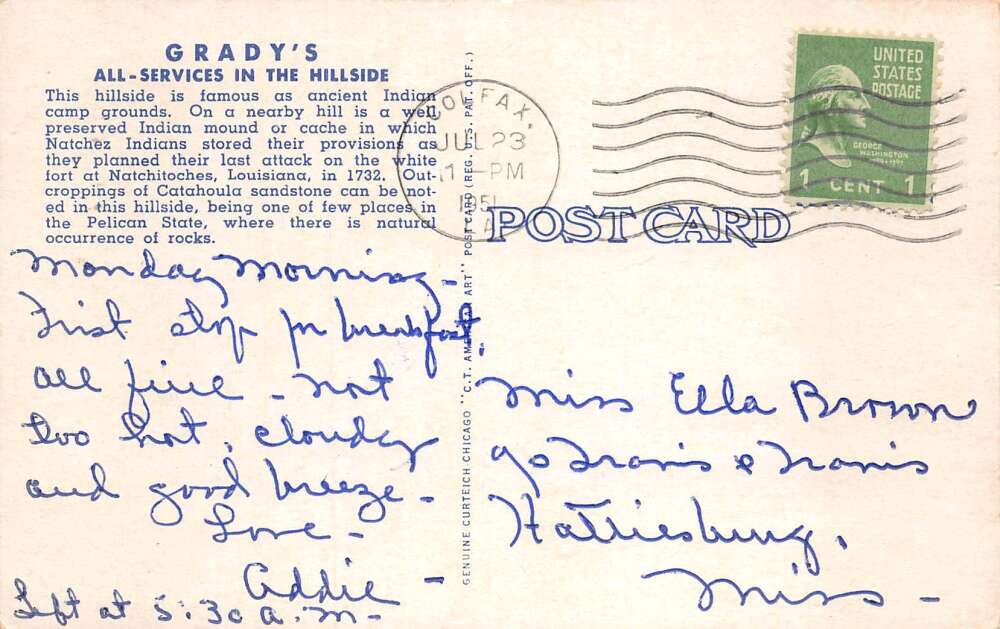 GRADY'S
ALL-SERVICES IN THE HILLSIDE
This hillside is famous as ancient Indian
camp grounds. On a nearby hill is a well
preserved Indian mound or cache in which
Natchez Indians stored their provisions as
they planned their last attack on the white
fort at Natchitoches, Louisiana, in 1732. Out-
croppings of Catahoula sandstone can be not-
ed in this hillside, being one of few places in
the Pelican State, where there is natural
occurrence of rocks.
Monday Morning -
First stop for breakfast.
all fine - not
too hot, cloudy
and good breeze -
Love -
Addie -
Left at 5:30 A.M -
GENUINE CURTEICH CHICAGO "C.T. AMERICAN ART" POST CARD (REG. U.S. PAT. OFF.)
COLFAX,
JUL 23
1 - PM
1951
LA
UNITED
STATES
POSTAGE
GEORGE
WASHINGTON
1 CENT 1
POST CARD
Miss Ella Brown
c/o Travis & Travis
Hattiesburg,
Miss -